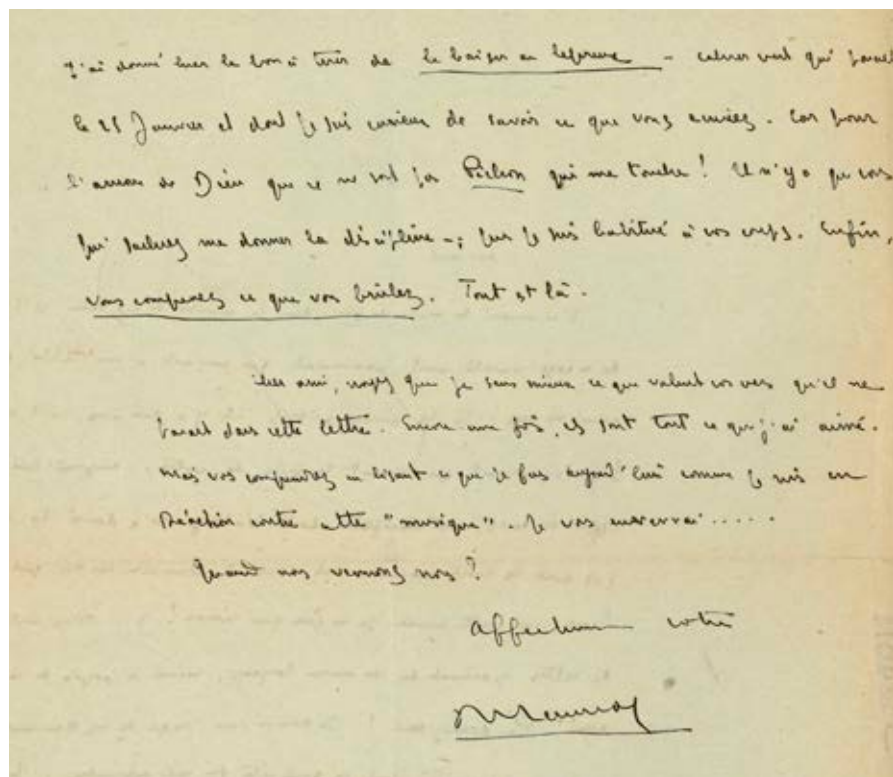 J'ai donné hier le bon à tirer de le baiser au lépreux – cahier vert qui paraît
le 25 Janvier et dont je suis curieux de savoir ce que vous . Car pour
l'amour de Dieu que ce ne soit pas qui me touche ! Il n'y a que vous
qui sachiez me donner la discipline –; puis je suis habitué à vos coups. Enfin,
vous comprenez ce que vous brûlez. Tout est là.
cher ami, voyez que je sens mieux ce que valent vos vers qu'il ne
paraît dans cette lettre. Encore une fois, ils sont tout ce que j'ai aimé.
Mais vous comprendrez en lisant ce que je fais aujourd'hui comme je suis en
Réaction contre cette "musique". Je vous enverrai.....
Quand nous verrons nous ?